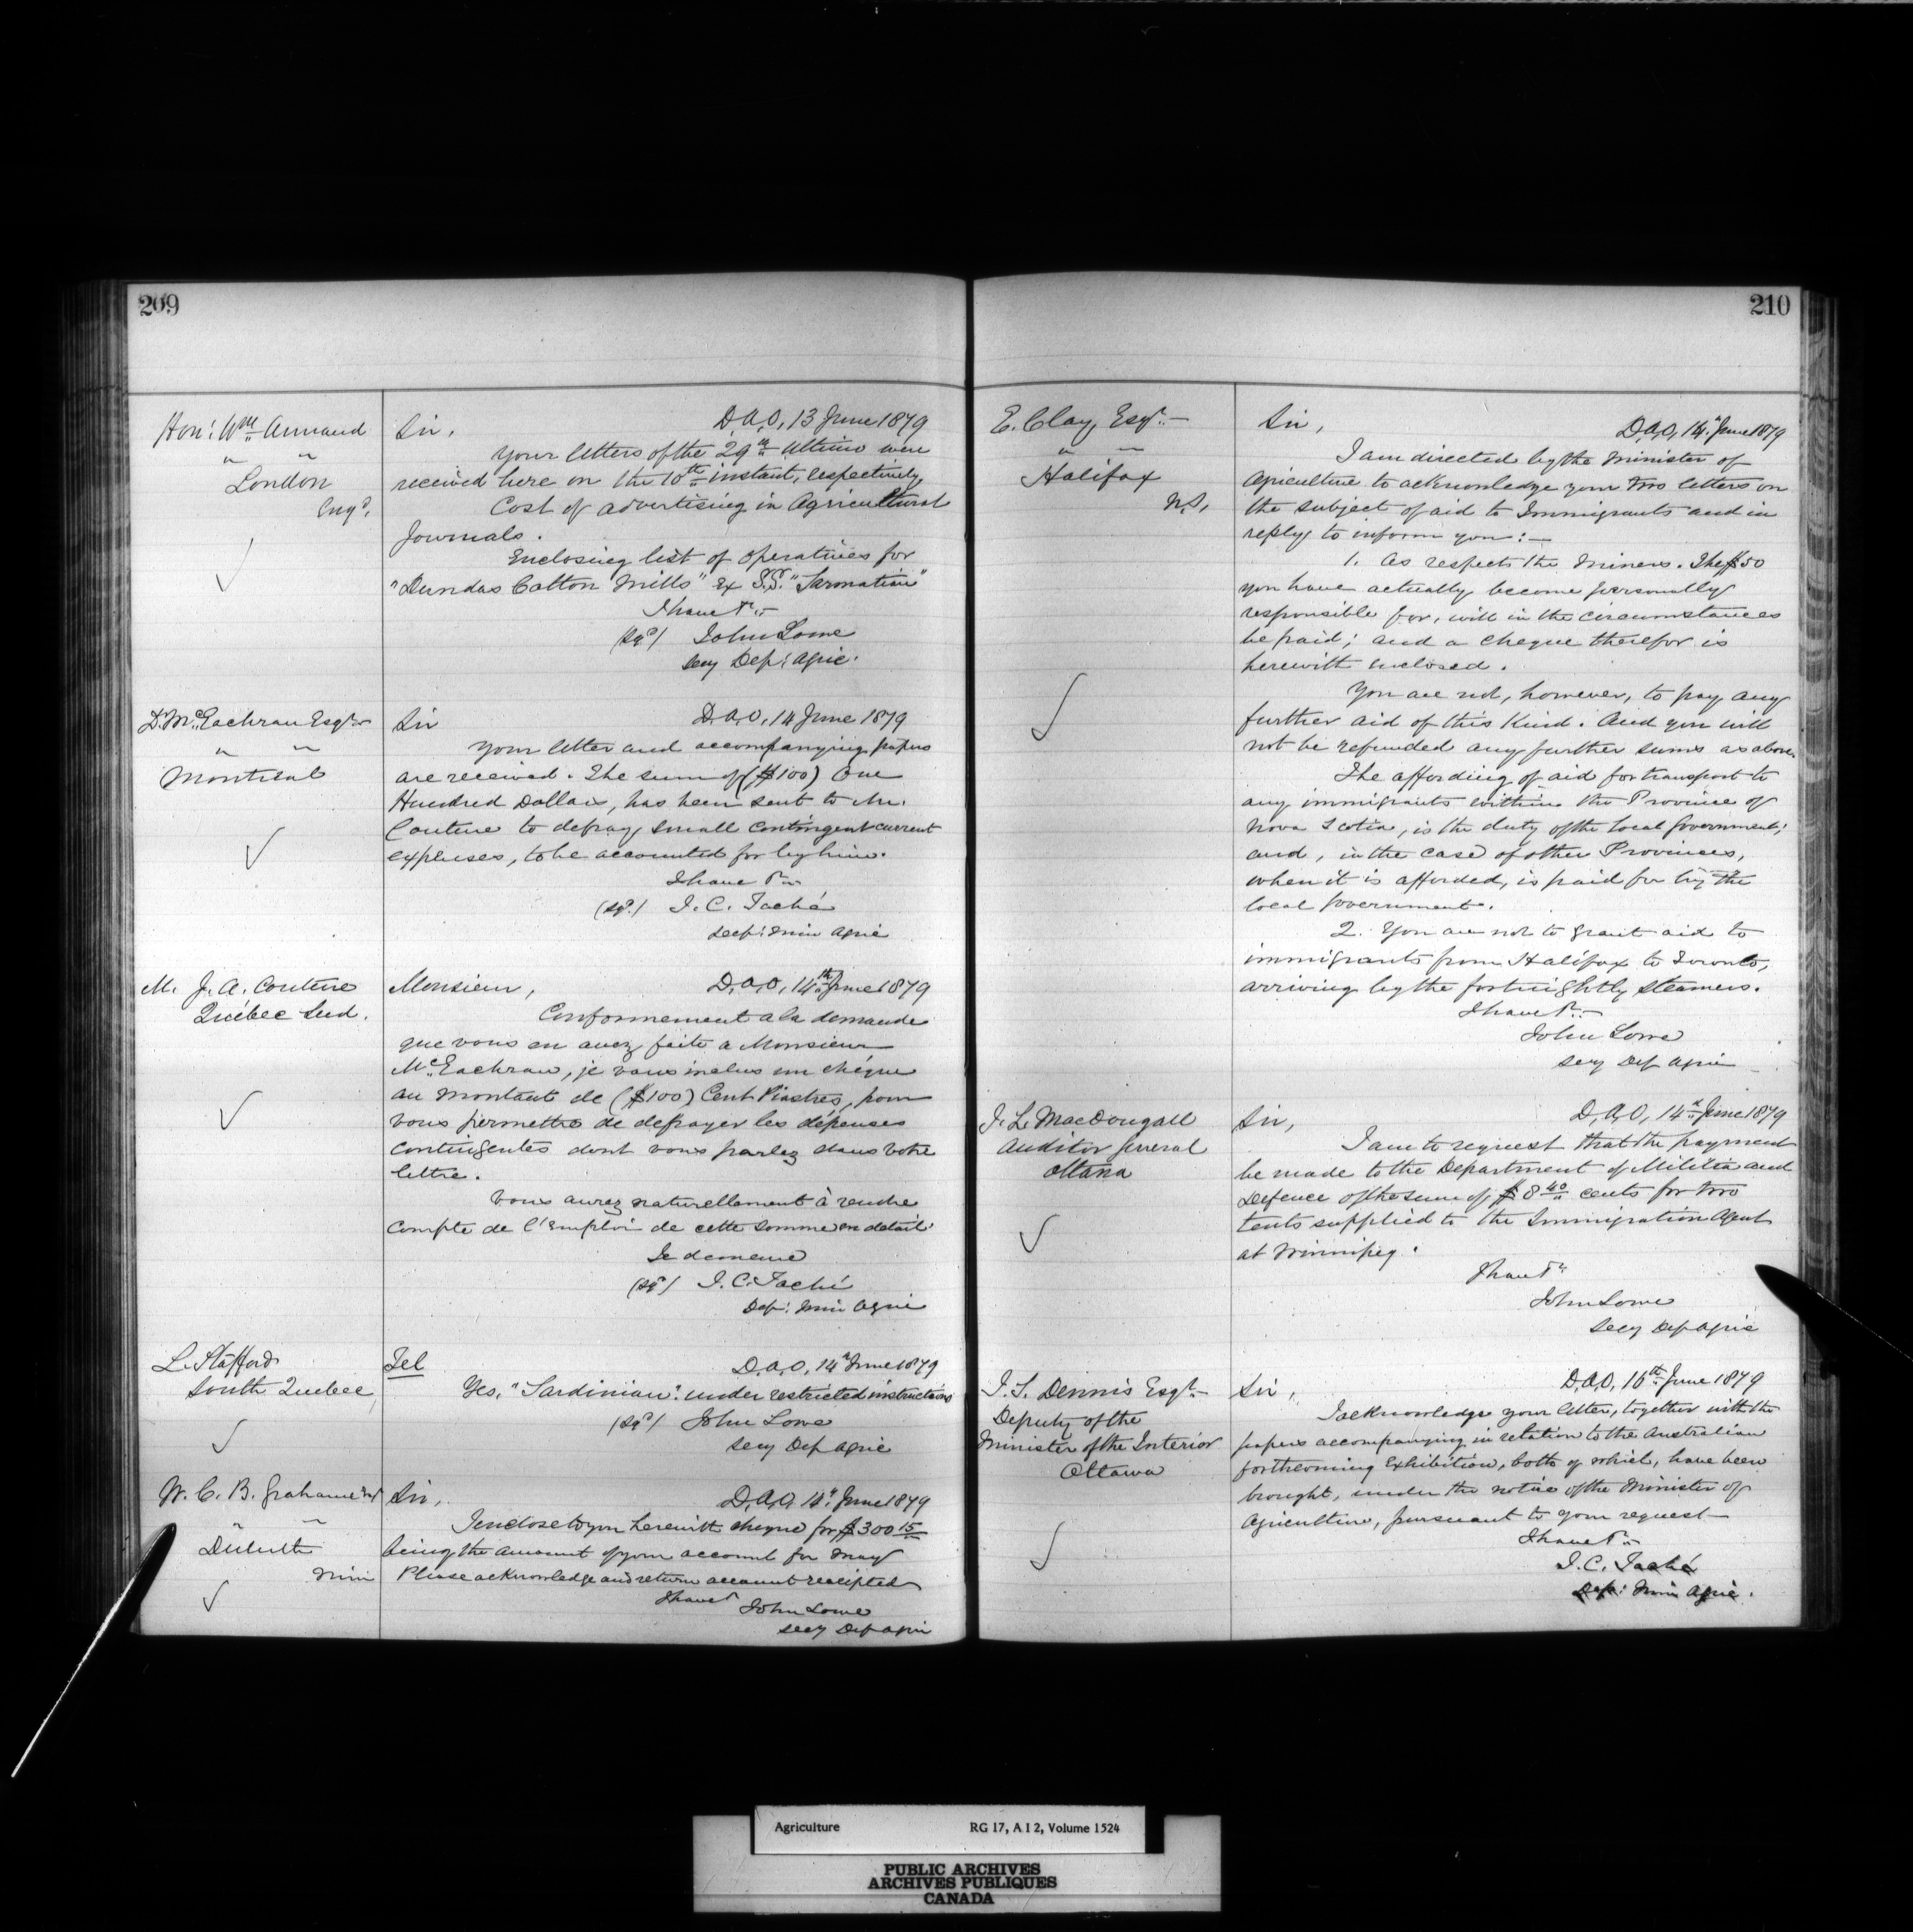 209
Hon: Wm Annand
" "
London
Engd.
Sir, D.A.O, 13 June 1879
Your letters of the 29th Ultimo were
received here on the 10th instant, respectively
Cost of advertising in Agricultural
Journals.
Enclosing list of operatives for
"Dundas Cotton Mills" ex S.S. "Sarmatian"
I have &c
(sgd) John Lowe
Secy Dep: Agric.
D. McEachran Esqr
" "
Montreal
Sir D.A.O, 14 June 1879
Your letter and accompanying papers
are received. The sum of ($100) One
Hundred Dollars, has been sent to Mr.
Couture to defray small contingent current
expenses, to be accounted for by him.
I have &c
(sgd.) J. C. Taché
Dep: Min Agric
M. J. A. Couture
Québec Sud.
Monsieur, D.A.O, 14th June 1879
Conformement a la demande
que vous en avez faite a Monsieur
McEachran, je vous inclus un chéque
au montant de ($100) Cent Piastres, pour
vous permettre de defrayer les dépenses
contingentes dont vous parlez dans votre
lettre.
Vous aurez naturellement à rendre
compte de l'emploi de cette somme en detail.
Je demeure
(sgd) J. C. Taché
Dep: Min Agric
L. Stafford
South Quebec
Tel D.A.O, 14th June 1879
Yes, "Sardinian". under restricted instructions
(sgd) John Lowe
Secy Dep Agric
W. C. B. Grahame Esq
" "
Duluth
Min
Sir, D.A.O. 14th June 1879
I enclose to you herewith cheque for $300 15
being the amount of your account for May
Please acknowledge and return account receipted
I have &
John Lowe
Secy Dep Agric
210
E. Clay, Esqr.
" "
Halifax
N.S.
Sir, D.A.O, 14th June 1879
I am directed by the Minister of
Agriculture to acknowledge your two letters on
the subject of aid to Immigrants and in
reply to inform you:—
1. As respects the Miners. The $50
you have actually become personally
responsible for, will in the circumstances
be paid; and a cheque therefor is
herewith enclosed.
You are not, however, to pay any
further aid of this kind. And you will
not be refunded any further sums as above.
The affording of aid for transport to
any immigrants within the Province of
Nova Scotia, is the duty of the local Government;
and, in the case of other Provinces,
when it is afforded, is paid for by the
local Government.
2. You are not to grant aid to
immigrants from Halifax to Toronto,
arriving by the fortnightly steamers.
I have &c
John Lowe
Secy Dep Agric
J. L. MacDougall
Auditor General
Ottawa
Sir, D.A.O, 14th June 1879
I am to request that the payment
be made to the Department of Militia and
Defence of the sum of $8 40 cents for two
tents supplied to the Immigration Agent
at Winnipeg.
I have &c
John Lowe
Secy Dep Agric
J. S. Dennis Esqr.
Deputy of the
Minister of the Interior
Ottawa
Sir, D.A.O, 16th June 1879
I acknowledge your letter, together with the
papers accompanying in relation to the Australian
forthcoming Exhibition, both of which, have been
brought, under the notice of the Minister of
Agriculture, pursuant to your request—
I have &c
J. C. Taché
Dep: Min Agric.
Agriculture RG 17, A I 2, Volume 1524
PUBLIC ARCHIVES
ARCHIVES PUBLIQUES
CANADA